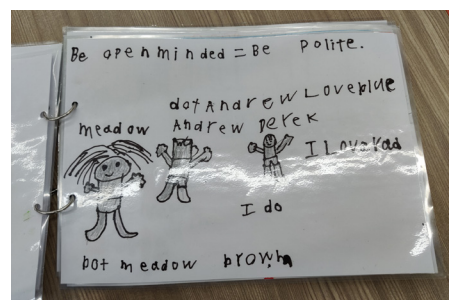 Be openminded = Be polite.
dot Andrew Loveblue
meadow Andrew Derek
I Lovered
I do
bot meadow brown